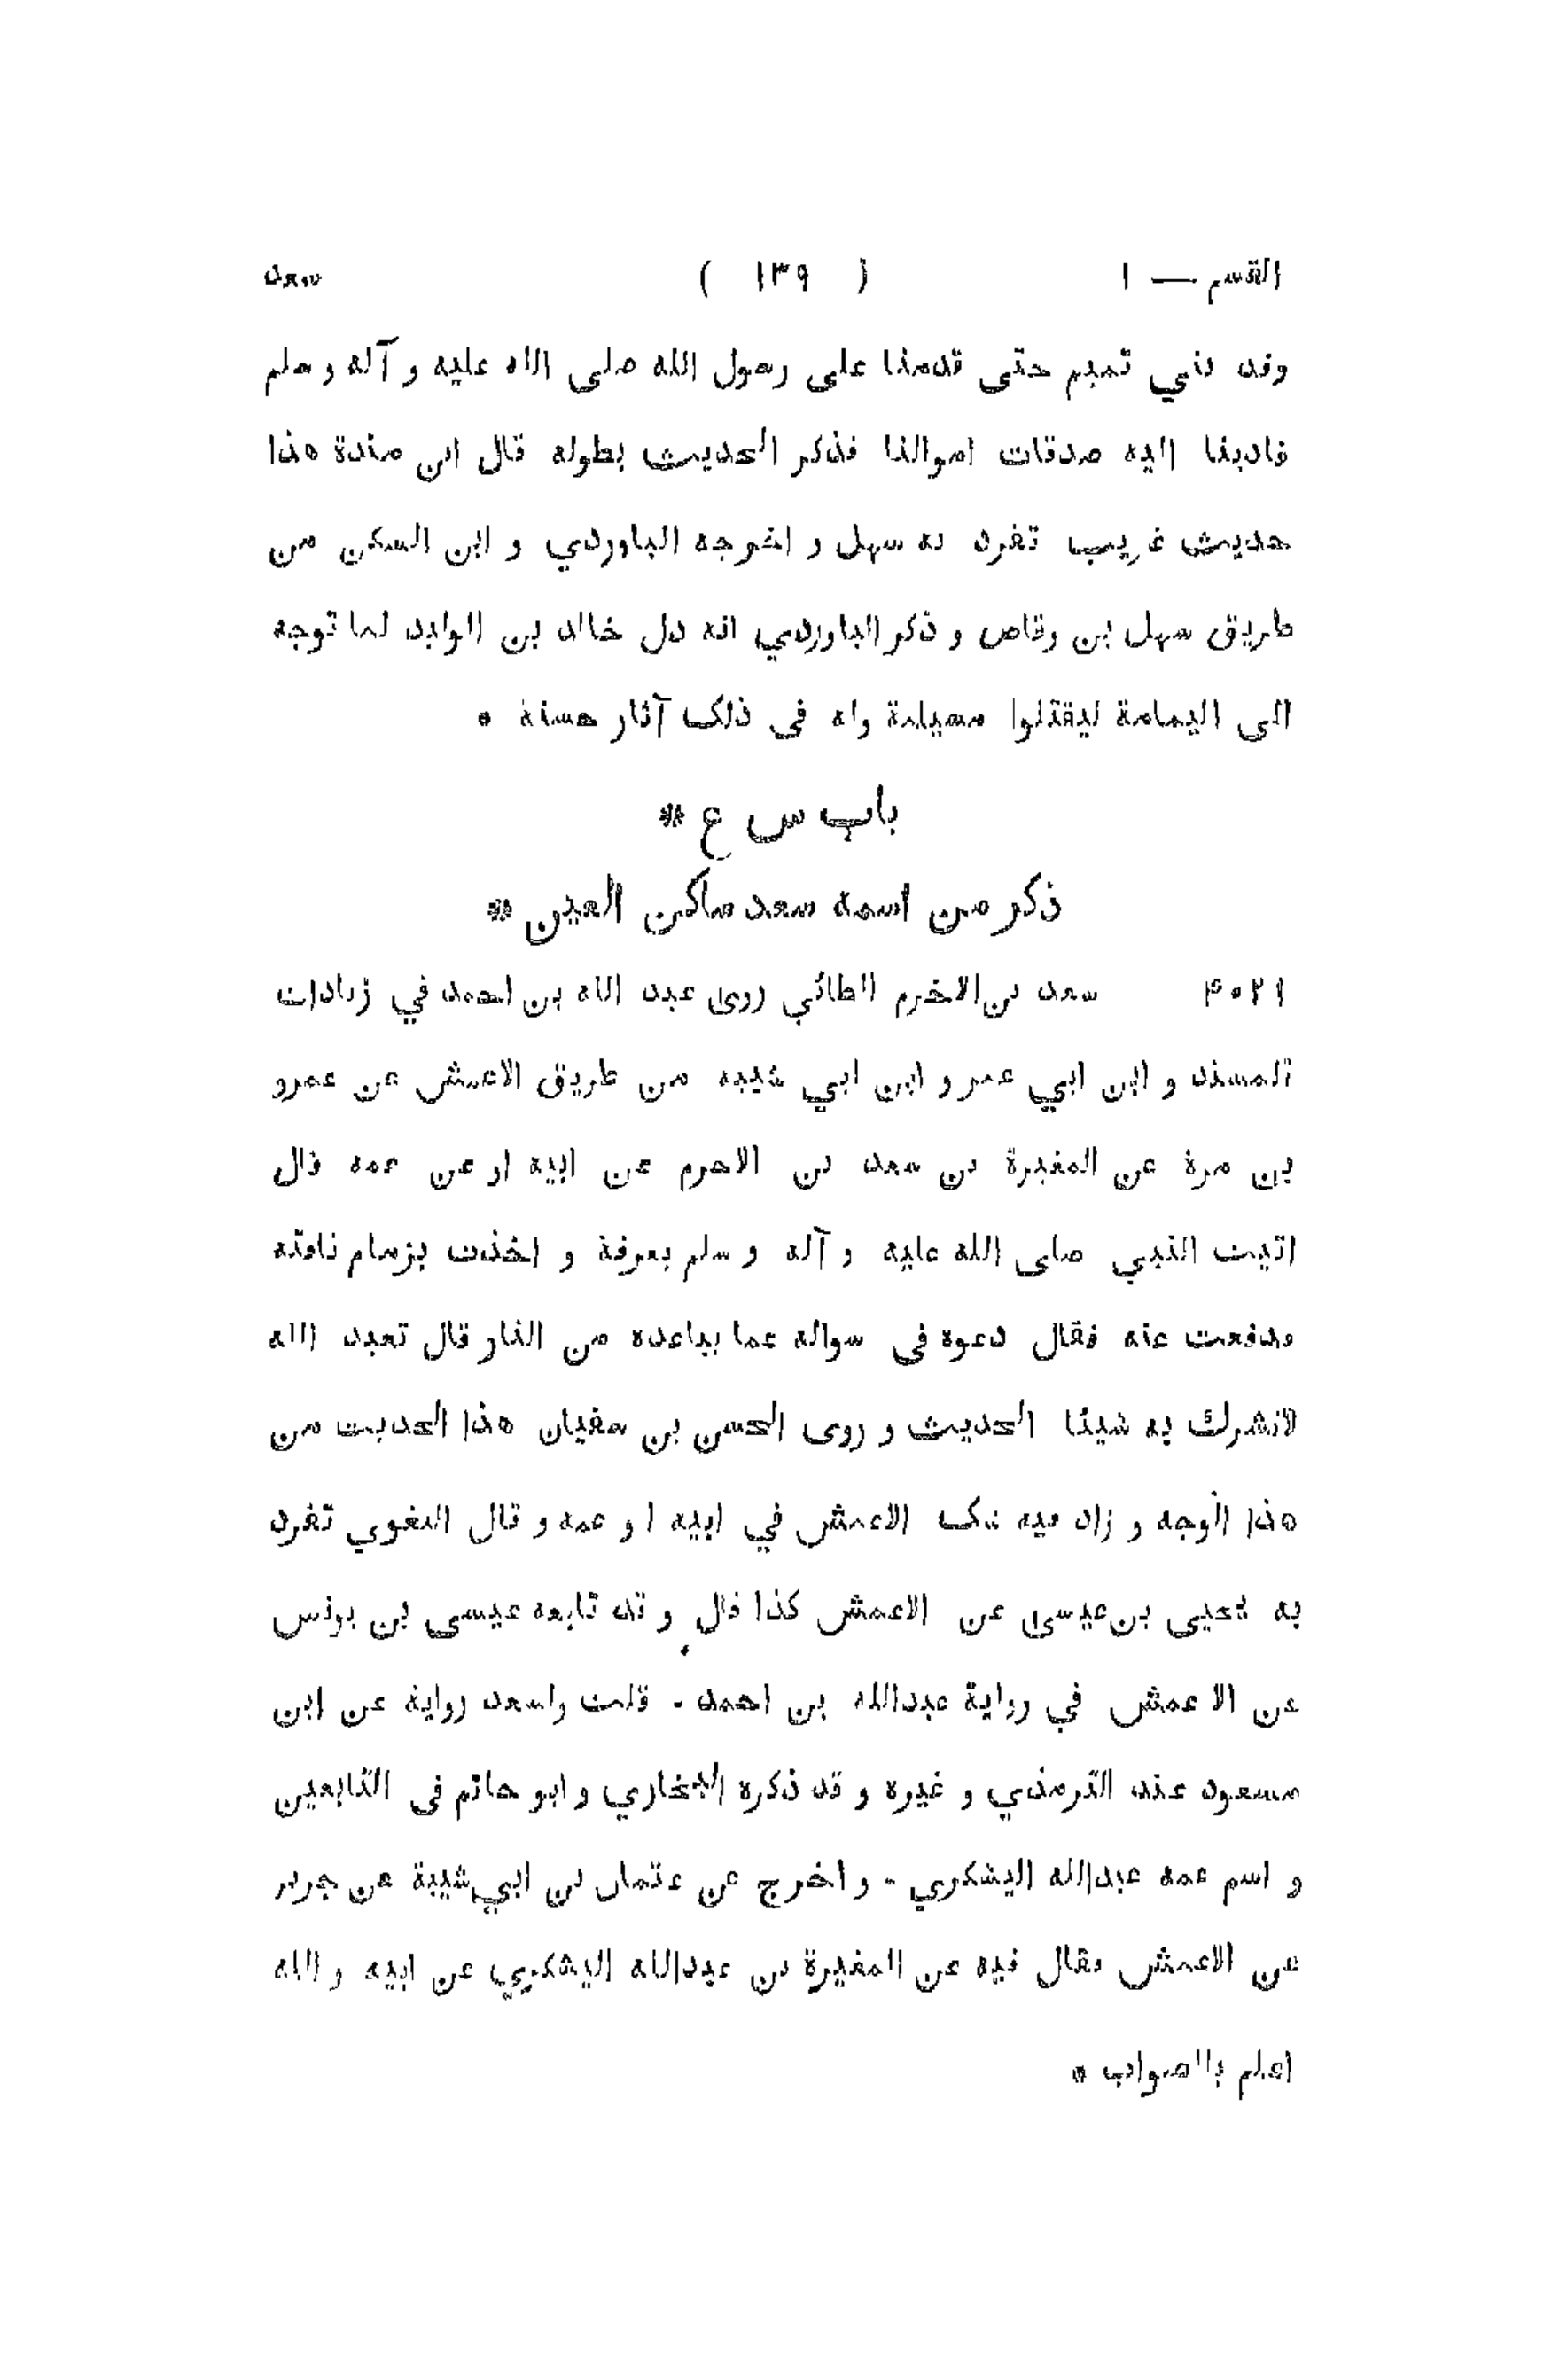 القسم — ١ ( ١٣٩ ) سعد
وفد بني تميم حتى قدمنا على رسول الله صلى الله عليه و آله و سلم
فادينا اليه صدقات اموالنا فذكر الحديث بطوله قال ابن مندة هذا
حديث غريب تفرد به سهل و اخرجه الباوردي و ابن السكن من
طريق سهل بن وقاص و ذكر الباوردي انه دل خالد بن الوليد لما توجه
الى اليمامة ليقتلوا مسيلمة وله فى ذلك آثار حسنة *
باب س ع *
ذكر من اسمه سعد ساكن العين *
٤٠٢١ سعد بن الاخرم الطائي روى عبد الله بن احمد في زيادات
المسند و ابن ابي عمر و ابن ابي شيبه من طريق الاعمش عن عمرو
بن مرة عن المغيرة بن سعد بن الاخرم عن ابيه او عن عمه قال
اتيت النبي صلى الله عليه و آله و سلم بعرفة و اخذت بزمام ناقته
فدفعت عنه فقال دعوه فى سواله عما يباعده من النار قال تعبد الله
لاتشرك به شيئا الحديث و روى الحسن بن سفيان هذا الحديث من
هذا الوجه و زاد فيه شك الاعمش في ابيه او عمه و قال البغوي تفرد
به يحيى بن عيسى عن الاعمش كذا قال و قد تابعه عيسى بن يونس
عن الاعمش في رواية عبدالله بن احمد - قلت ولسعد رواية عن ابن
مسعود عند الترمذي و غيره و قد ذكره البخاري و ابو حاتم فى التابعين
و اسم عمه عبدالله اليشكري - و اخرج عن عثمان بن ابي شيبة عن جرير
عن الاعمش فقال فيه عن المغيرة بن عبدالله اليشكري عن ابيه و الله
اعلم بالصواب *